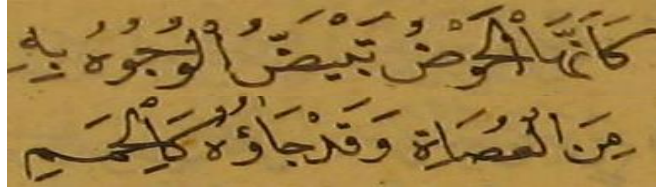 كَأَنَّهَا الْحَوْضُ تَبْيَضُّ الْوُجُوهُ بِهِ
مِنَ الْعُصَاةِ وَقَدْ جَاؤُهُ كَالْحُمَمِ